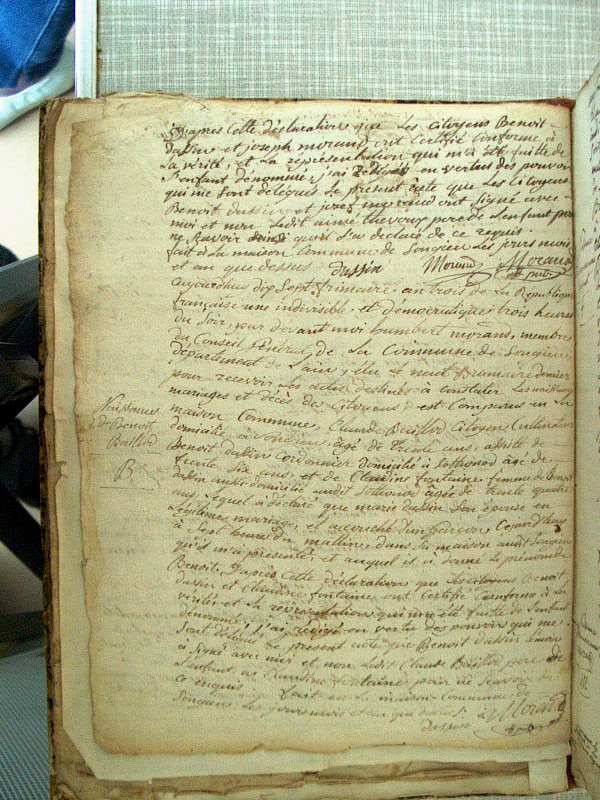 D'apres Cette déclaration que Les Citoyens Benoit
dussin et joseph morand ont Certifié Conforme à
La vérité, et La représentation qui m'a été faitte de
L'enfant dénommé, j'ai rédigé en vertus des pouvoirs
qui me sont délégués Le présent acte que Les Citoyens
Benoit dussin et josef morand ont Signé avec
moi et non Ledit aimé thevoux pere de L'enfant pour
ne Scavoir ainsi qu'il S'a déclaré de ce requis
fait à la maison Commune de Songieu Les jours mois
et an que dessus dussin Morand Morand
off. pub.
aujourdhui dix Sept frimaire an trois de La République
française une indivisible et démocratique trois heures
du Soir, par devant moi humbert morand, membre
du Conseil Général de La Commune de Songieu,
département de L'ain, élu Le neuf primaire dernier
pour recevoir Les actes destinés à constater Les naissances
mariages et décès des Citoyens; est Comparus en La
maison Commune, Claude Baillod Citoyen Cultivateur
domicilié à Songieu, agé de trente ans, assisté de
Benoit dussin cordonnier domicilié à Sothonod âgé de
trente Six ans, et de Claudine fontaine femme de Benoit
dussin aussi domicilié audit Sothonod agée de trente quatre
ans, Lequel a déclaré que marie dussin Son épouse en
Légitimes mariage, est accouchée d'un Garçon, Cejourdhuy
à Sept heures du mattin, dans Sa maison audit Songieu
qu'il m'a présenté, et auquel il a donné Le prénom de
Benoit, d'après Cette déclaration que Les citoyens Benoit
dussin et Claudine fontaine ont Certifié Conforme à La
vérité et La représentation qui m'a été faitte de L'enfant
dénommé, j'ai rédigé en vertu des pouvoirs qui me
Sont délégués Le présent acte que Benoit dussin témoin
a Signé avec moi et non Ledit Claude Baillod pere de
L'enfant ni Claudine fontaine pour ne Scavoir de
ce enquis fait en La maison Commune de
Songieu Les jours mois et an que dessus Morand
dussin
Naissance
de Benoit
Baillod
B